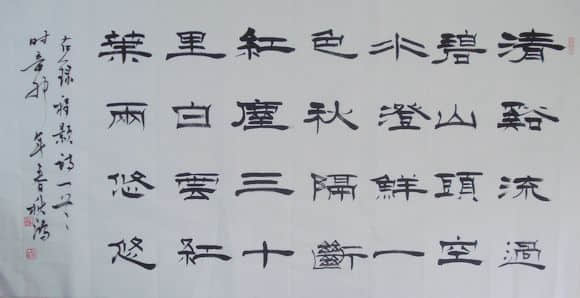 清谿流過
碧山頭空
水澄鮮一
色秋隔斷
紅塵三十
里白雲紅
葉兩悠悠
右錄程顥詩一首
时辛卯年春秋